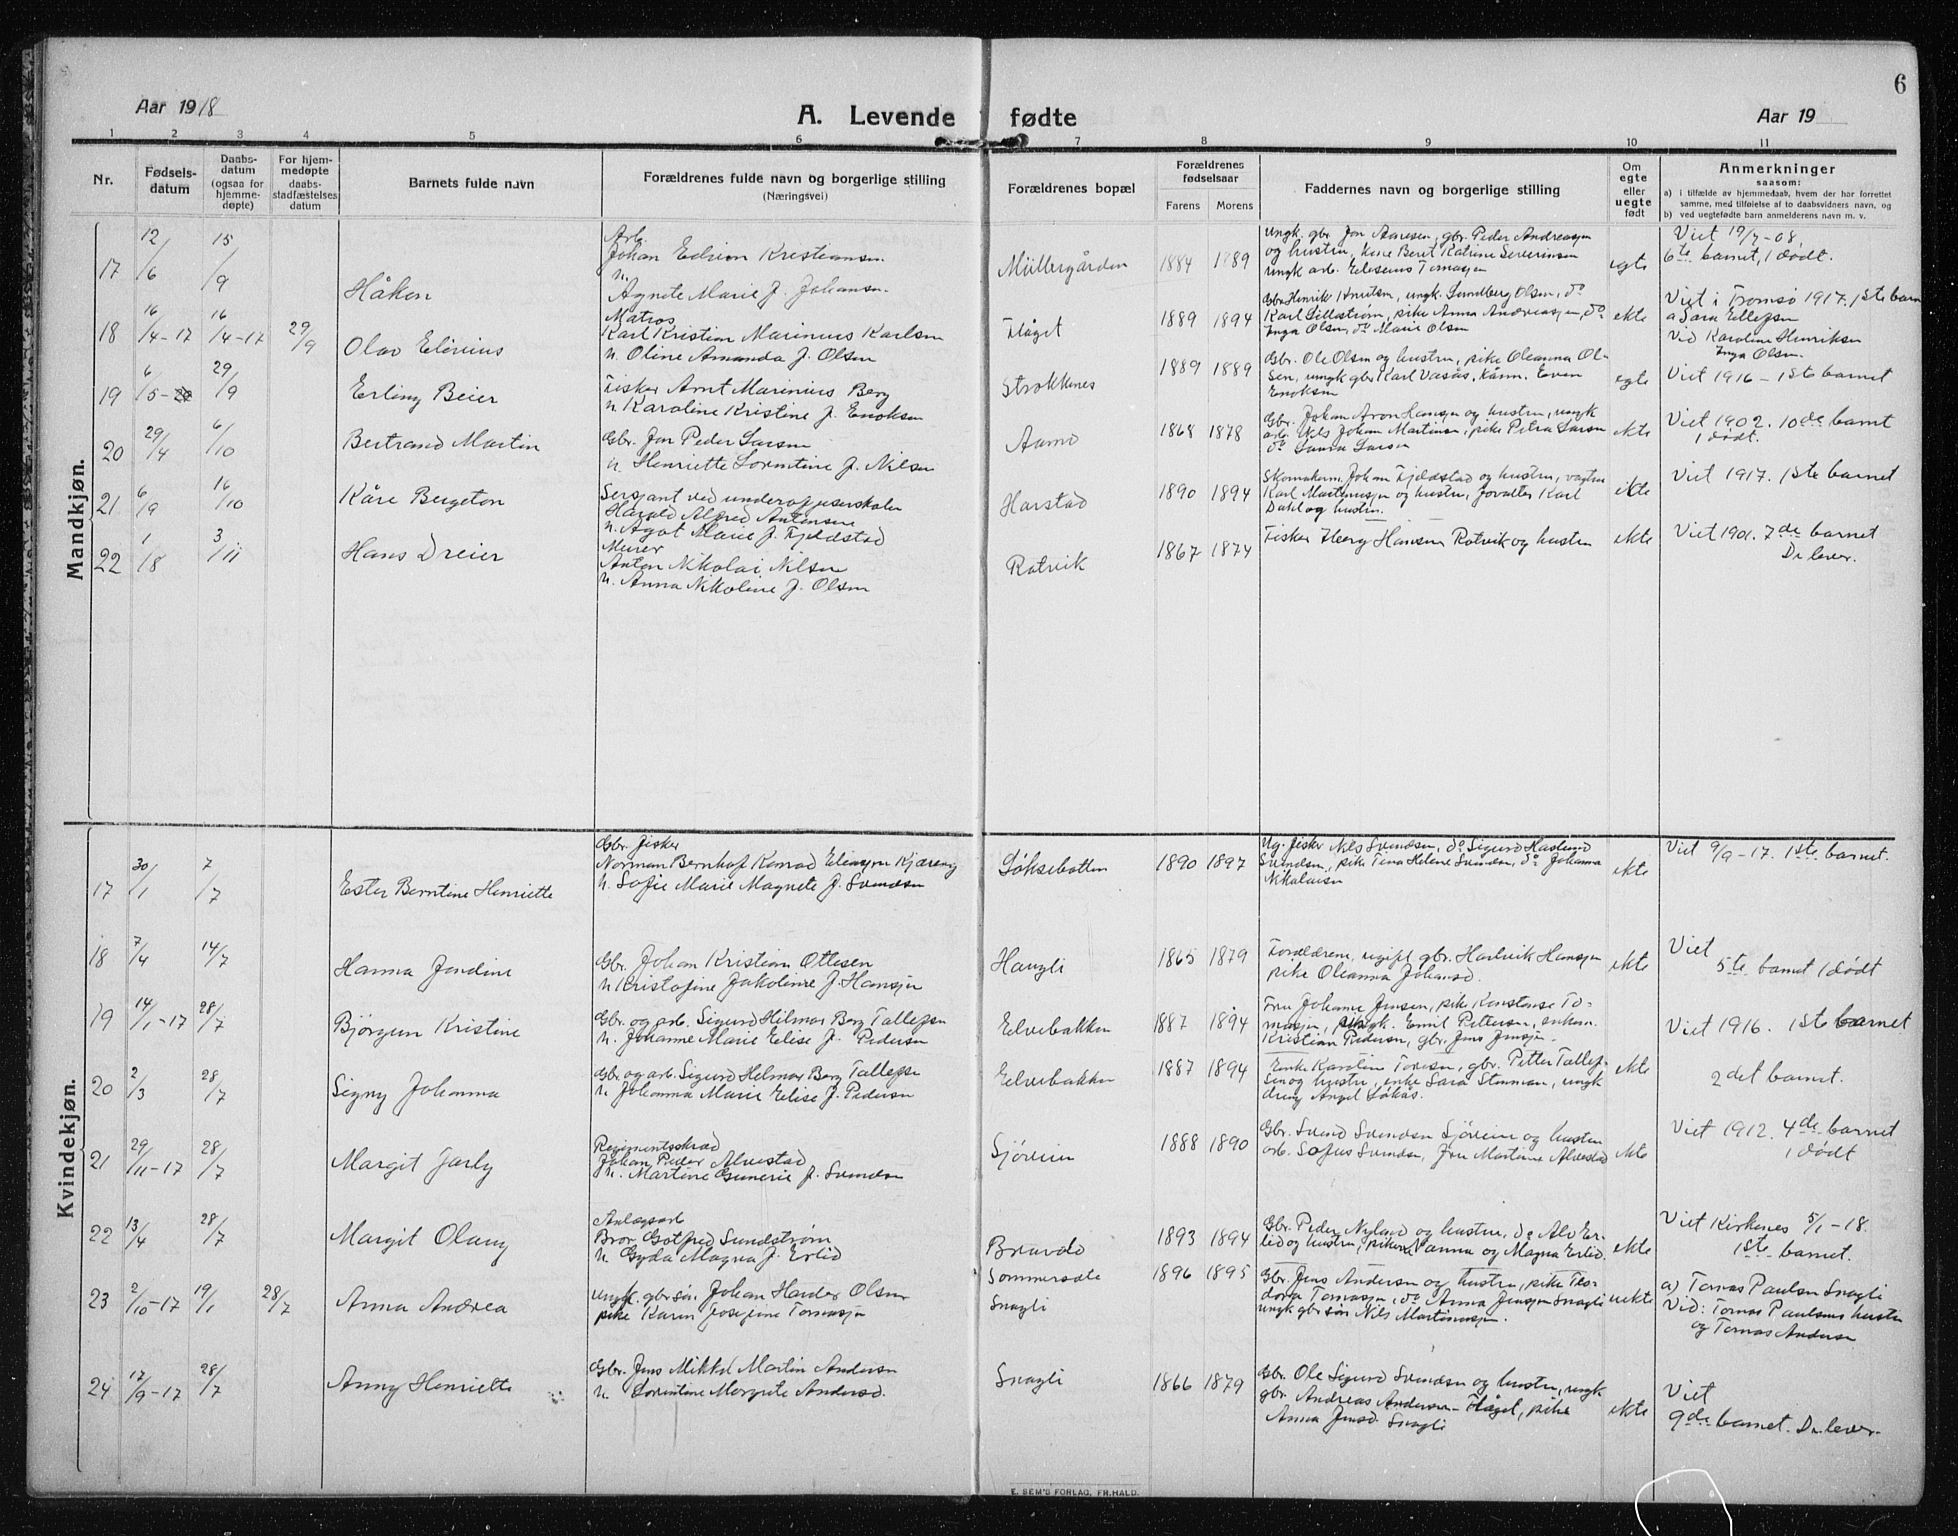 6
Aar 1918
A. Levende fødte
Aar 19
1 2 3 4 5 6 7 8 9 10 11
Nr.
Fødsels-
datum
Daabs-
datum
(ogsaa for
hjemme-
døpte)
For hjem-
medøpte
daabs-
stadfæstelses
datum
Barnets fulde navn
Forældrenes fulde navn og borgerlige stilling
(Næringsvei)
Forældrenes bopæl
Forældrenes
fødselsaar
Farens Morens
Faddernes navn og borgerlige stilling
Om
egte
eller
uegte
født
Anmerkninger
saasom:
a) i tilfælde av hjemmedaab, hvem der har forrettet
samme, med tilføielse af to daabsvidners navn, og
b) ved uegtefødte barn anmelderens navn m. v.
Mandkjøn.
17 12/6 15/9 Håkon
Arb.
Johan Edvin Kristiansen
u.
Agnete Marie f. Johansen
Müllergården 1884 1889
ungk. gbr. Jon Aanesen, gbr. Peder Andreassen
og hustru, kone Berit Katrine Severinsen
ungk. arb. Eliseus Tomassen
egte
Viet 19/7-08,
6te barnet, 1 dødt.
18 16/4-17 16/4-17 29/9 Olav Elivius
Matros
Karl Kristian Marinius Karlsen
u. Oline Amanda f. Olsen
Flåget 1889 1894
Gbr. Henrik Knutsen, ungk. Lundberg Olsen, do
Karl Lillestrøm, pike Anna Andreassen, do
Inga Olsen, do Marie Olsen
ekte
Viet i Tromsø 1917. 1ste barn
a Sara Ellefsen
Vid Karoline Henriksen
Inga Olsen.
19 6/5 29/9 Erling Beier
Fisker Arnt Marinius Berg
u. Karoline Kristine f. Enoksen
Strokkenes 1889 1889
Gbr. Ole Olsen og hustru, pike Oleanna Ol-
sen, ungk gbr Karl Vasås, kånn. Even
Enoksen
egte
Viet 1916 - 1ste barnet
20 29/4 6/10 Bertrand Martin
Gbr. Jon Peder Larsen
u. Henriette Lorentine f. Nilsen
Aamo 1868 1878
Gbr. Johan Aron Hansen og hustru, ungk
arb. Nils Johan Martinsen, pike Petra Larsen
do Laura Larsen
ekte
Viet 1902. 10de barnet
1 dødt.
21 6/9 16/10 Kåre Bergeton
Sersjant ved underoffiserskolen
Harald Alfred Antonsen
u. Agot Marie f. Fjeldstad
Harstad 1890 1894
Skomakerm. Johan Fjeldstad og hustru, vagtm
Karl Martinussen og hustru, forvalter Karl
Dahl og hustru.
ekte
Viet 1917. 1ste barnet
22 1/8 3/11 Hans Dreier
Murer
Anton Nikolai Nilsen
u. Anna Nikoline f. Olsen
Rotvik 1867 1874
Fisker Herg Hansen Rotvik og hustru
ekte
Viet 1901. 7de barnet
De lever.
Kvindekjøn.
17 30/1 7/7 Ester Berntine Henriette
Gbr. fisker
Norman Bernhof Konrad Eliassen Kjærvig
u. Sofie Marie Magnete f. Svendsen
Løksebotten 1890 1897
Ug. fisker Nils Svendsen, do Sigurd Haslund
Svendsen, pike Tina Helene Svendsen, do Johanna
Nikolaisen
ekte
Viet 9/9-17. 1ste barnet.
18 7/4 14/7 Hanna Jondine
Gbr. Johan Kristian Ottesen
u Kristofine Jakobine f. Hansen
Haugli 1865 1879
Forældrene, ugift gbr. Hartvik Hansen
pike Oleanna Johansd.
ekte
Viet
5te barnet 1 dødt
19 14/1-17 28/7 Bjørgun Kristine
Gbr. og arb. Sigurd Hilmar Berg Tollefsen
u. Johanne Marie Elise f. Pedersen
Elvebakken 1887 1894
Fru Johanne Jensen, pike Konstanse To-
massen, ungk. Emil Pettersen, enkem.
Kristian Pedersen, gbr. Jens Jensen.
Viet 1916. 1ste barnet
20 2/3 28/7 Signy Johanna
Gbr. og arb. Sigurd Helmar Berg Tollefsen
u. Johanna Marie Elise f. Pedersen
Elvebakken 1887 1894
Enke Karoline Toresen, gbr. Petter Tollef-
sen og hustru, enke Sara Stenman, ungk
dreng Angel Løkås.
ekte
2det barnet.
21 29/11-17 28/7 Margit Jarly
Regimentsskræd
Johan Peder Alvestad
u. Martine Gunerie f. Svendsen
Sjøveien 1888 1890
Gbr. Svend Svendsen Sjøveien og hustru
arb. Sofus Svendsen, Fru Martine Alvestad
ekte
Viet 1912. 4de barnet
1 dødt
22 13/4 28/7 Margit Olaug
Anlægsarb
Bror Gotfred Sundstrøm
u. Gyda Magna f. Erlid
Brando 1893 1894
Gbr. Peder Nyland og hustru, do Alv Er-
lid og hustru, piken Nanna og Magna Erlid
ekte
Viet Kirkenes 5/1-18.
1ste barnet.
23 2/10-17 19/1 28/7 Anna Andrea
ungk. gbr.søn. Johan Harder Olsen
pike Karen Josefine Tomassen
Sommersæte
Snagli 1896 1895
Gbr. Jens Andersen og hustru, pike Teo-
dora Tomassen, do Anna Jenssen Snagli
ungk gbr søn Nils Martinussen.
uekte
a) Tomas Paulsen Snagli
Vid: Tomas Paulsens hustru
og Tomas Andersen
24 17/9-17 28/7 Anny Henriette
Gbr. Jens Mikkel Martin Andersen
u Lorentine Margrete Andersd.
Snagli 1866 1879
Gbr. Ole Sigurd Svendsen og hustru, ungk
gbr. Andreas Andersen - Flåget, pike
Anna Jensd. Snagli
ekte
Viet
9de barnet. De lever.
E. SEM'S FORLAG, FR.HALD.